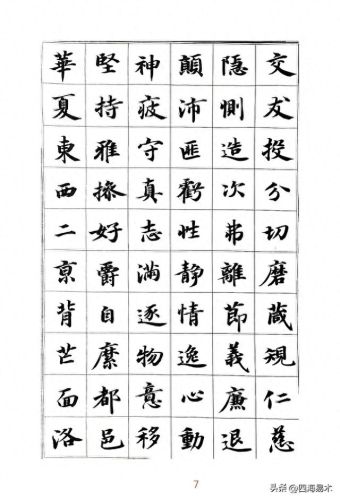 交友投分切磨箴規仁慈
隱惻造次弗離節義廉退
顛沛匪虧性靜情逸心動
神疲守真志滿逐物意移
堅持雅操好爵自縻都邑
華夏東西二京背芒面洛
7
头条 @四海易木